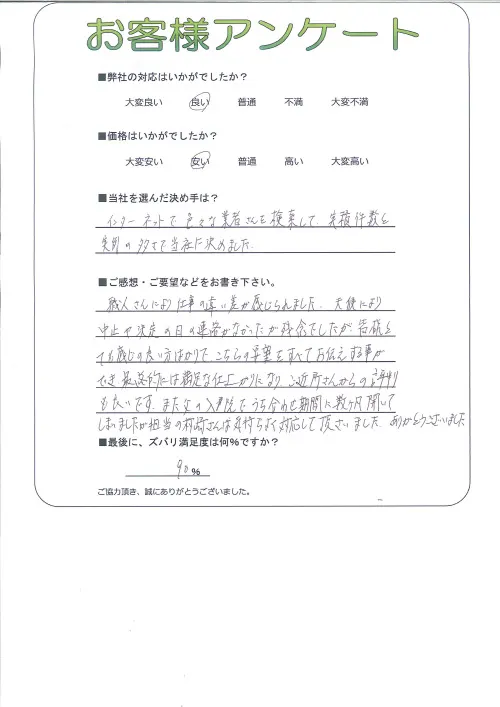 お客様アンケート
■弊社の対応はいかがでしたか？
大変良い 良い 普通 不満 大変不満
■価格はいかがでしたか？
大変安い 安い 普通 高い 大変高い
■当社を選んだ決め手は？
インターネットで色々な業者さんを検索して、実績件数と
実例の多さで当社に決めました。
■ご感想・ご要望などをお書き下さい。
職人さんにより仕事の違い差が感じられました。天候により
中止や決定の日の連絡がなかったが残念でしたが、皆様と
ても感じの良い方ばかりで、こちらの要望をすべてお伝えする事が
でき最終的には満足な仕上がりになり、ご近所さんからの評判
も良いです。また父の入院でうち合わせ期間に数ヶ月間いて
しまいましたが担当の村崎さんは気持ちよく対応して頂きました ありがとうございました
■最後に、ズバリ満足度は何%ですか？
90 %
ご協力頂き、誠にありがとうございました。